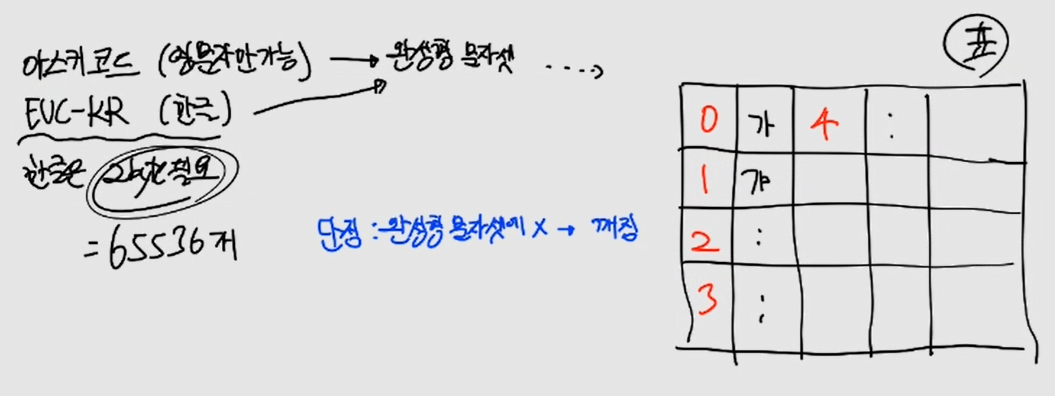 아스키코드 (영문자만가능) → 완성형 문자셋 ....>
EUC-KR (한글)
한글은 2byte 필요
= 65536개
단점 : 완성형 문자셋에 X → 깨짐
표
0 가 4 :
1 갸
2 :
3 :